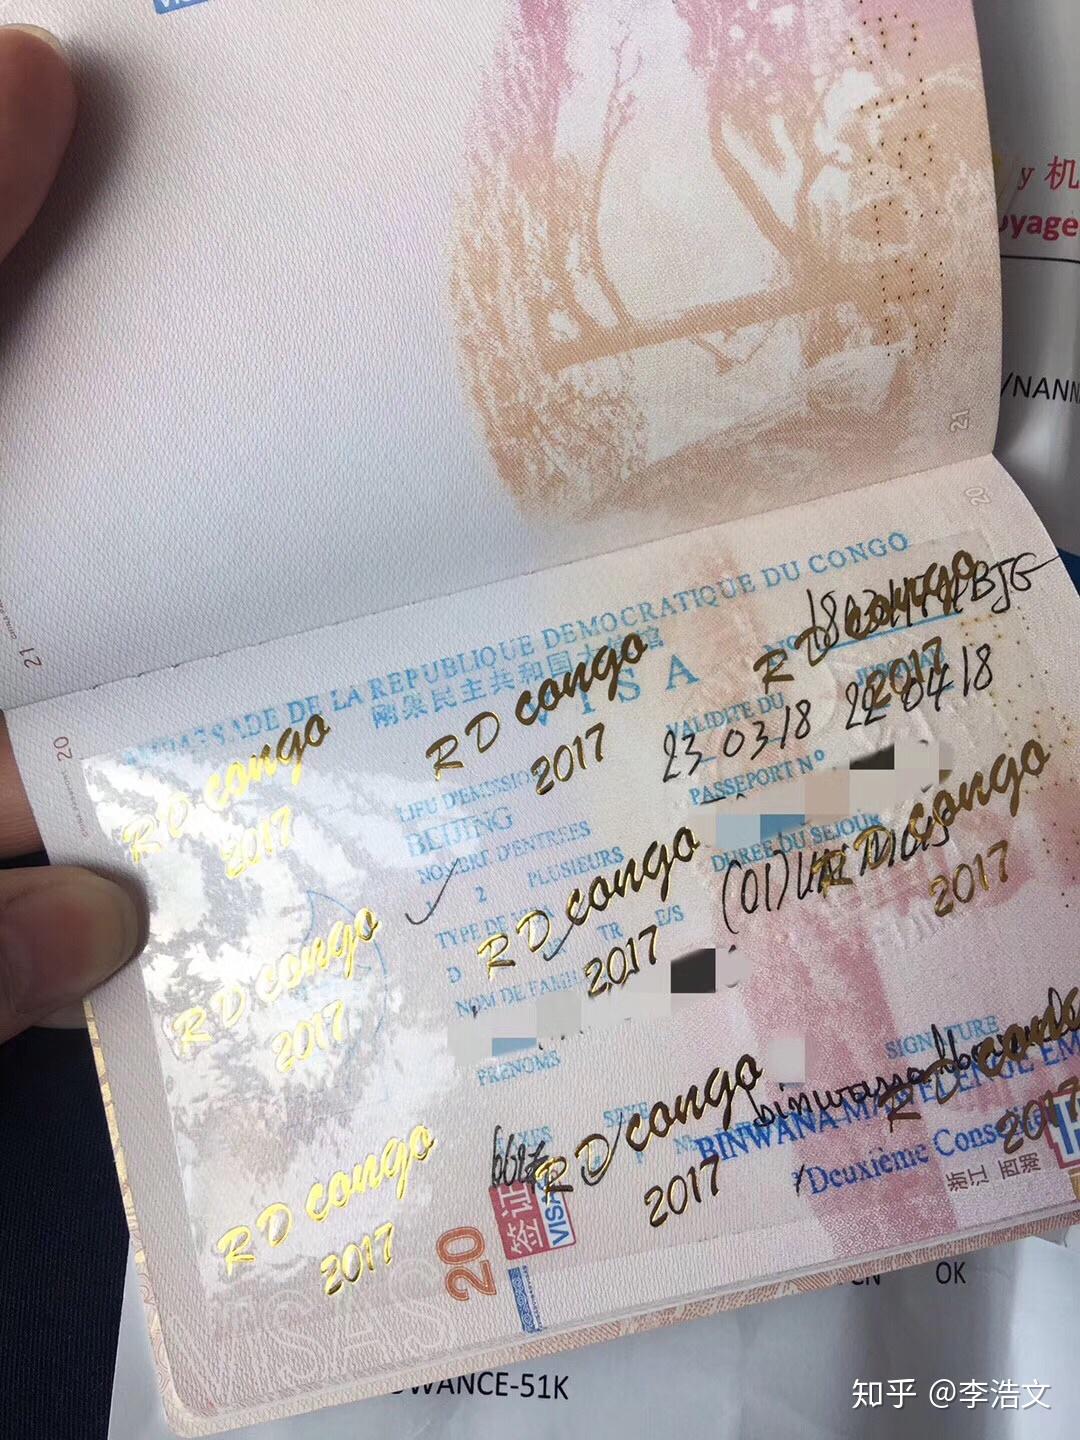 y 机
oyage
/NANN
21
20
21
20
DE LA REPUBLIQUE DEMOCRATIQUE DU CONGO
刚果民主共和国大使馆
VISA
RD congo
2017
RD congo
2017
RD congo
2017
VALIDITE DU
23 03/18 22 04/18
LIEU D'EMISSION
BEIJING
PASSEPORT N°
NOMBRE D'ENTREES
1 2 PLUSIEURS
DUREE DU SEJOUR
(01) UN MOIS
RD congo
2017
RD congo
2017
RD congo
2017
TYPE DE VISA
D TR E/S
NOM DE FAMILLE
PRENOMS
SIGNATURE
SEXE
TAXES
BINWANA
Deuxième
RD congo
2017
RD congo
2017
RD congo
2017
浙江 西湖
签证
VISAS
20
VISAS
CN OK
OWANCE-51K
知乎 @李浩文